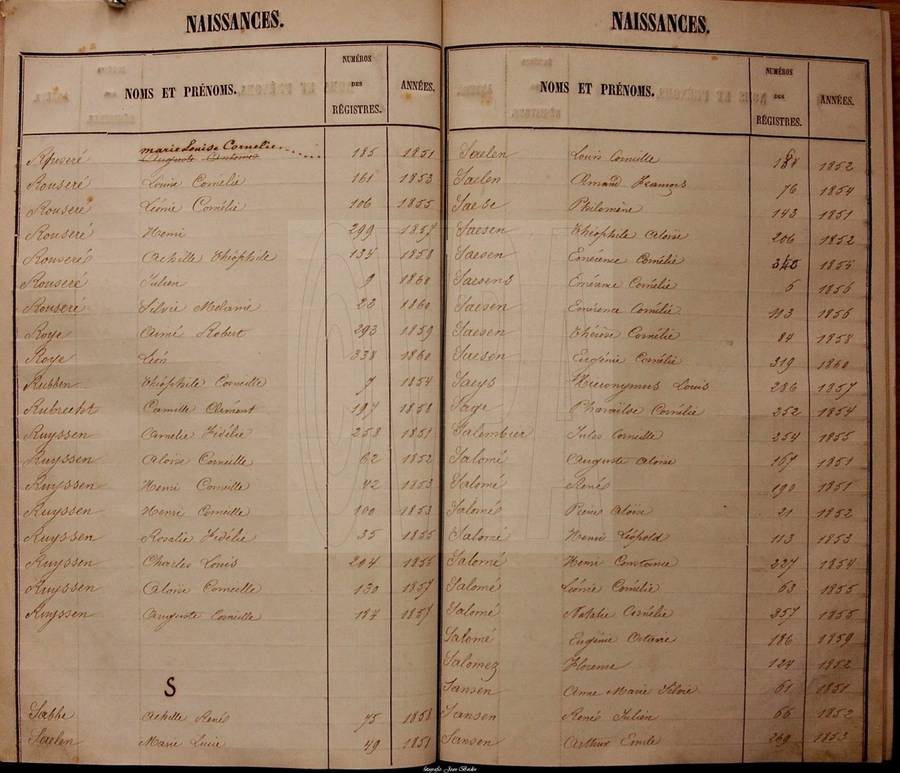 NAISSANCES.
NOMS ET PRÉNOMS. NUMÉROS DES RÉGISTRES. ANNÉES.
marie Louise Cornelie
Rouseré Auguste Antoine 185 1851
Rouseré Louise Cornélie 161 1853
Rouseré Léonie Cornélie 106 1855
Rouseré Henri 299 1857
Rouseré Achille Théophile 134 1858
Rouseré Julien 9 1860
Rouseré Silvie Melanie 22 1860
Roye Aimé Robert 293 1859
Roye Léon 338 1860
Rubben Théophile Corneille 7 1854
Rubrecht Camille Clement 197 1858
Ruyssen Cornelie Fidélie 253 1851
Ruyssen Aloïse Corneille 62 1852
Ruyssen Henri Corneille 42 1853
Ruyssen Henri Corneille 100 1853
Ruyssen Rosalie Fidélie 35 1855
Ruyssen Charles Louis 204 1856
Ruyssen Aloïse Corneille 130 1857
Ruyssen Auguste Corneille 187 1857
S
Sabbe Achille René 75 1858
Saelen Marie Lucie 49 1851
NAISSANCES.
NOMS ET PRÉNOMS. NUMÉROS DES RÉGISTRES. ANNÉES.
Saelen Louis Corneille 1852
Saelen Armand François 76 1854
Saebe Philomène 143 1851
Saesen Théophile Aloïse 206 1852
Saesen Emerence Cornélie 1855
Saesens Cornélie 6 1856
Saesen Cornélie 113 1856
Saesen Thérèse Cornélie 84 1858
Saesen Eugénie Cornélie 319 1860
Saeys Hieronymus Louis 286 1857
Sage Cornélie 252 1854
Salembier Jules Corneille 254 1855
Salomé Auguste Aloïse 167 1851
Salomé René 190 1851
Salomé Pierre Aloïse 21 1852
Salomé Henri Léopold 113 1853
Salomé Henri Constance 227 1854
Salomé Léonie Cornélie 63 1855
Salomé Natalie Cornélie 257 1855
Salomé Eugène Octave 186 1859
Salomez Florence 124 1852
Sansen Anne Marie Silvie 61 1851
Sansen René Julien 66 1852
Sansen Arthur Emile 269 1853